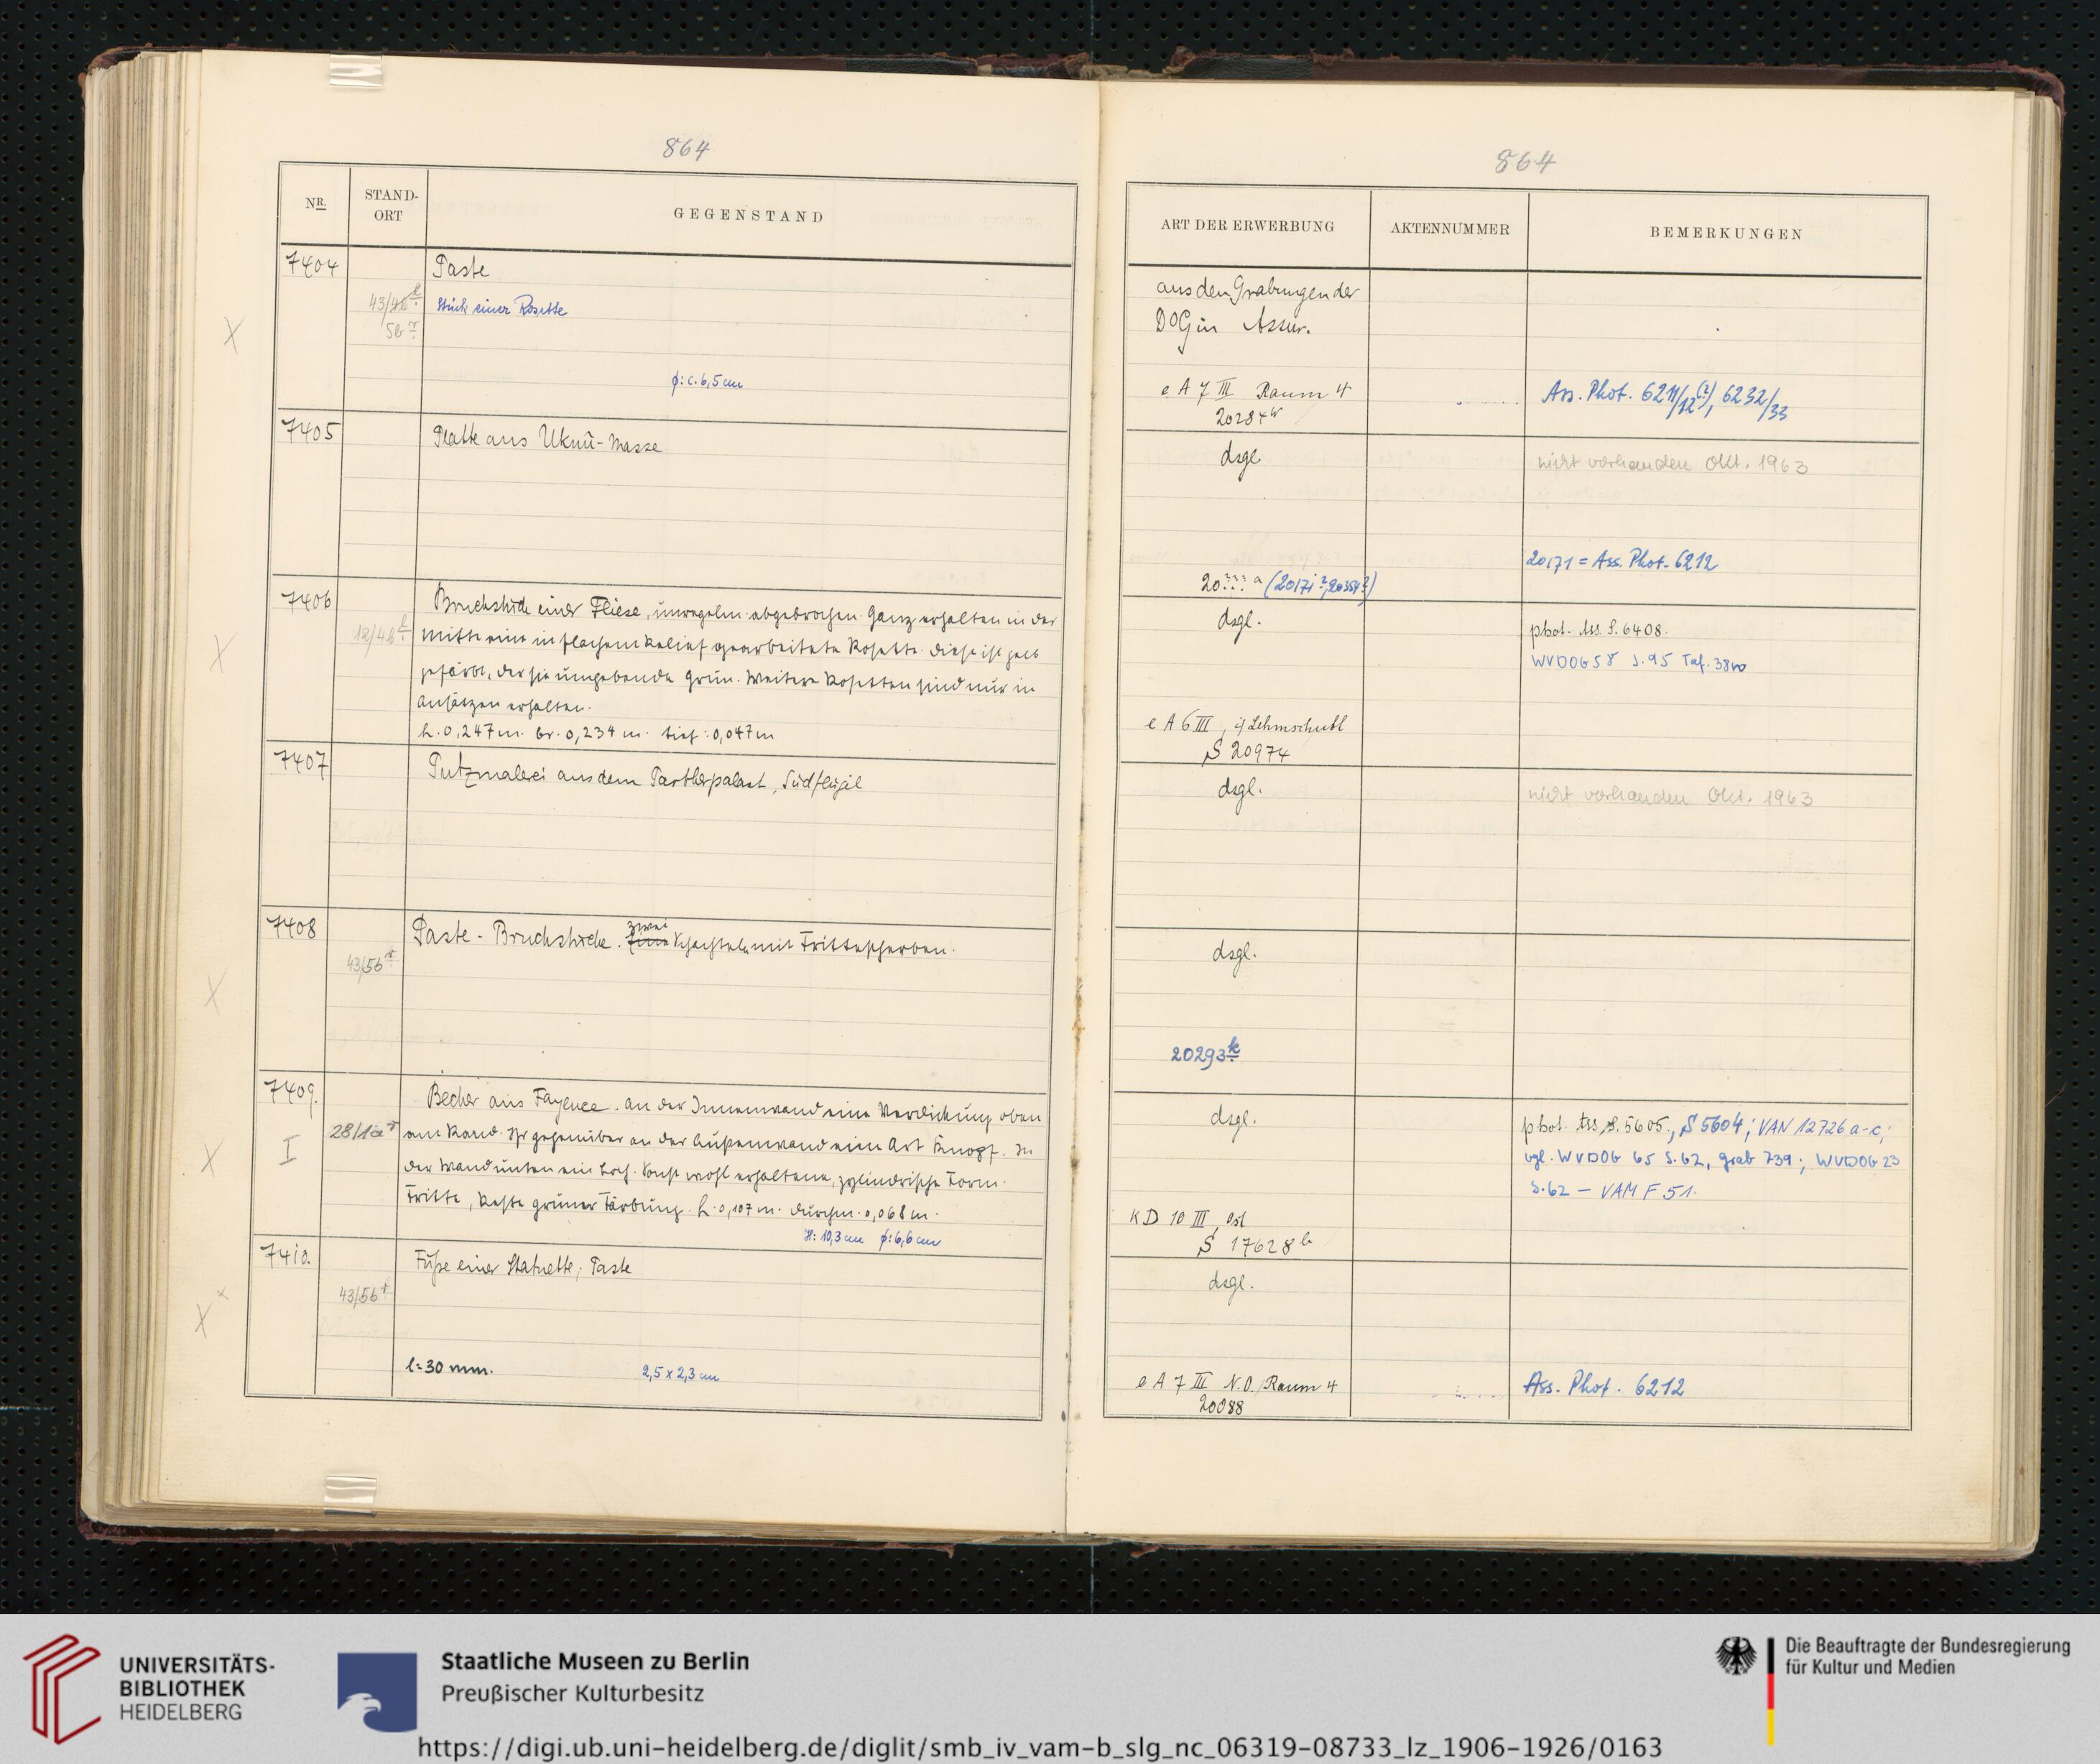 864
NR.
STAND-
ORT
GEGENSTAND
7404
Paste
43/4b
5b r
Stück einer Rosette
ϕ: c. 6,5 cm
7405
Platte aus Uknû-Masse
7406
Bruchstück einer Fliese, unregelm. abgebrochen. Ganz erhalten in der
12/4b
Mitte eine in flachem Relief gearbeitete Rosette. Diese ist gelb
gefärbt, der sie umgebende Grün. Weitere Rosetten sind nur in
Ansätzen erhalten.
h. 0,247 m. br. 0,234 m. tief: 0,047 m
7407
Putzmalerei aus dem Partherpalast, Südflügel
7408
zwei
Paste-Bruchstücke. Eine Schachteln mit Frittescherben.
43/5b r
7409.
Becher aus Fayence. An der Innenwand eine Verdickung oben
I
28/1a r
am Rand. Ihr gegenüber an der Außenwand eine Art Knopf. In
der Wand unten ein Loch. Sonst wohl erhaltene, zylindrische Form.
Fritte, Reste grüner Färbung. h. 0,107 m. Durchm. 0,068 m.
H: 10,3 cm ϕ: 6,6 cm
7410.
Füße einer Statuette; Paste
43/5b r
l = 30 mm.
2,5 x 2,3 cm
864
ART DER ERWERBUNG
AKTENNUMMER
BEMERKUNGEN
aus den Grabungen der
DOG in Assur.
e A 7 III Raum 4
Ass. Phot. 6211/12 (?), 6232/33
20284 w
dsgl
nicht vorhanden Okt. 1963
20171 = Ass. Phot. 6212
20??? a (20171?, 20354?)
dsgl.
phot. Ass. S. 6408.
WVDOG 58 S. 95 Taf. 38
e A 6 III, i/ Lehmschutt
S 20974
dsgl.
nicht vorhanden Okt. 1963
dsgl.
20293 k
dsgl.
phot. Ass. S. 5605., S 5604; VAN 12726 a-c;
vgl. WVDOG 65 S. 62, Grab 739; WVDOG 23
S. 62 – VAM F 51.
KD 10 III, Ost
S 17628 b
dsgl.
e A 7 III N.O. Raum 4
Ass. Phot. 6212
20088
UNIVERSITÄTS-
BIBLIOTHEK
HEIDELBERG
Staatliche Museen zu Berlin
Preußischer Kulturbesitz
Die Beauftragte der Bundesregierung
für Kultur und Medien
https://digi.ub.uni-heidelberg.de/diglit/smb_iv_vam-b_slg_nc_06319-08733_lz_1906-1926/0163